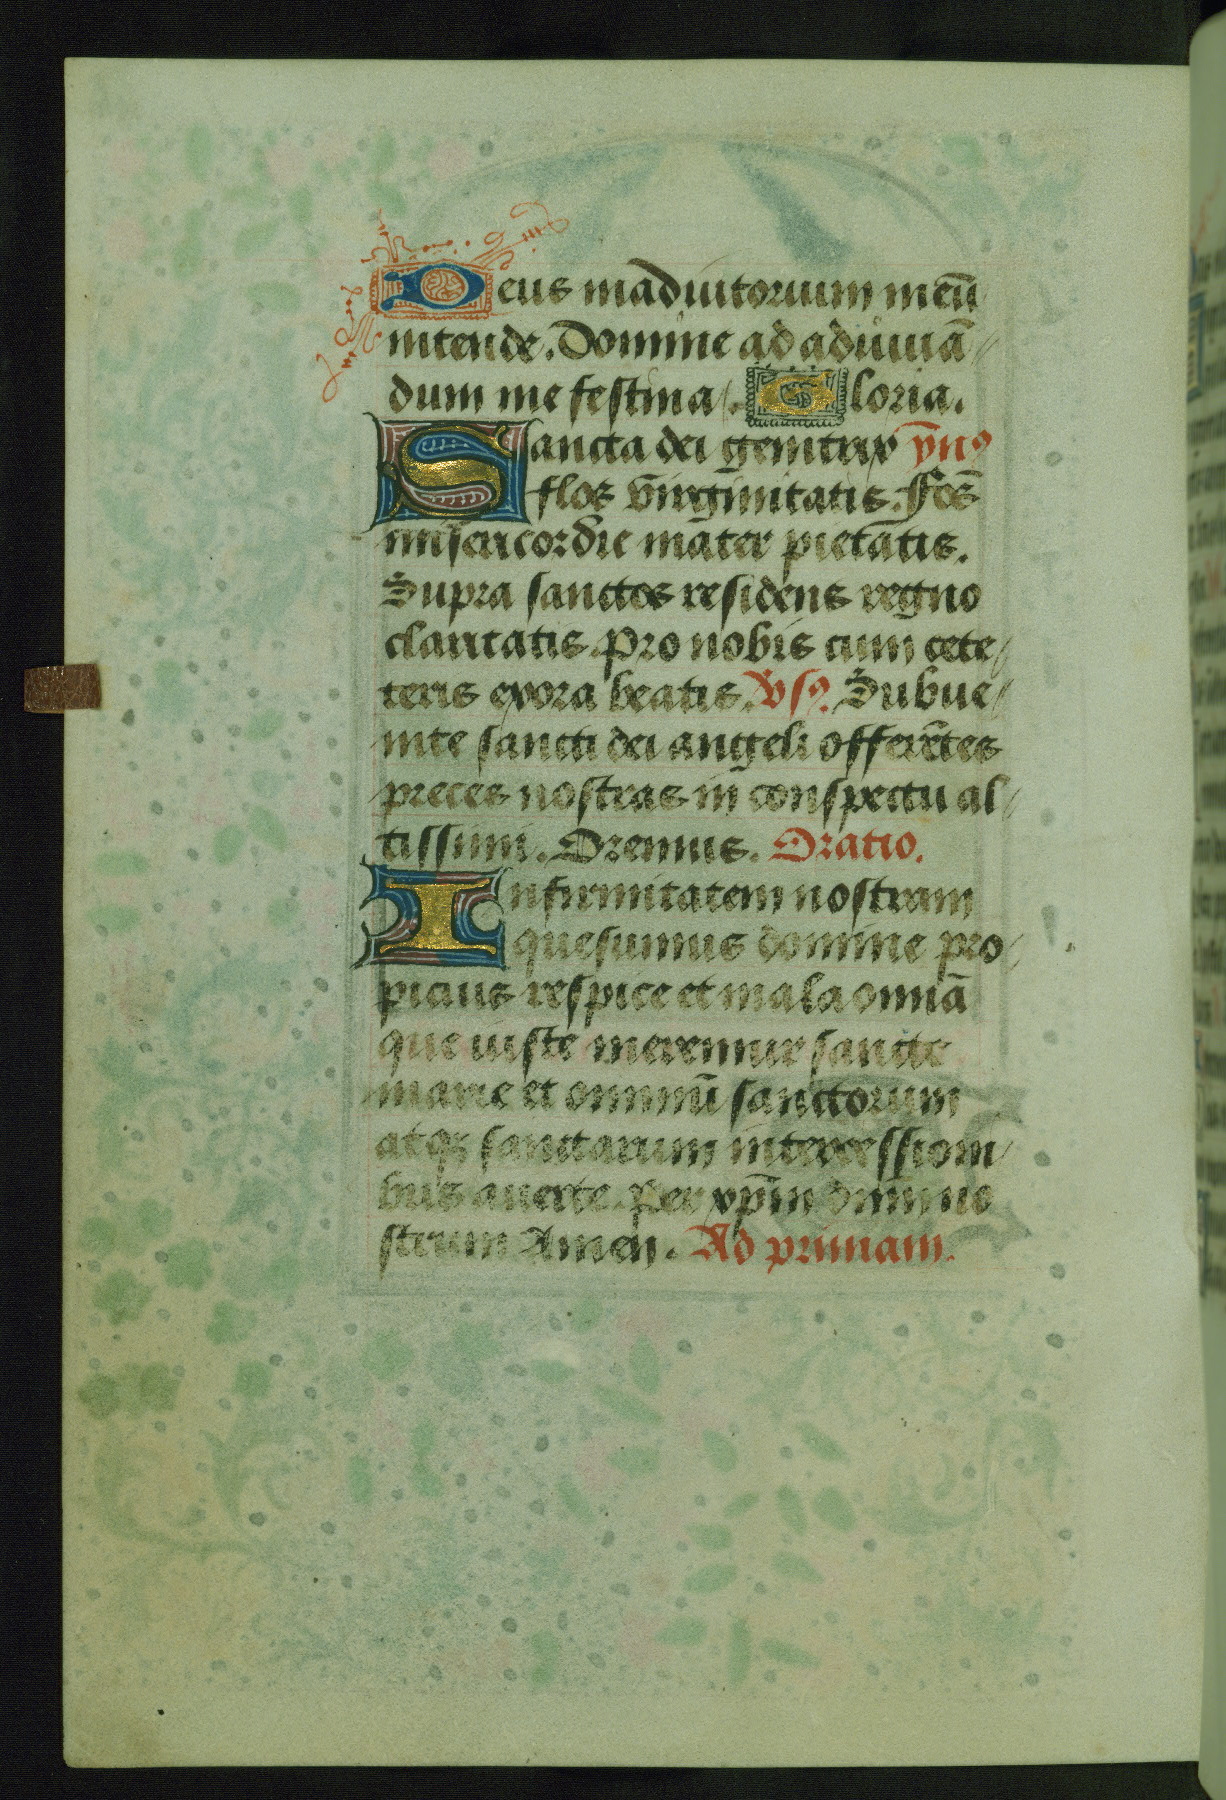 Deus in adiutorium meū
intende. Domine ad adiuuā
dum me festina. Gloria.
Sancta dei genitrix ỹnꝰ
flos v̄irginitatis. Fōs
misericordie mater pietatis.
Supra sanctos residens regno
claritatis. Pro nobis cum cete
teris exora beatis. Vsꝰ. Subue
nite sancti dei angeli offerētes
preces nostras in conspectu al
tissimi. Oremus. Oratio.
Infirmitatem nostram
quesumus domine pro
picius respice et mala omniā
que iuste meremur sancte
marie et omniū sanctorum
atqꝫ sanctarum intercessioni
bus auerte. Per xp̄m dnm no
strum Amen. Ad primam.